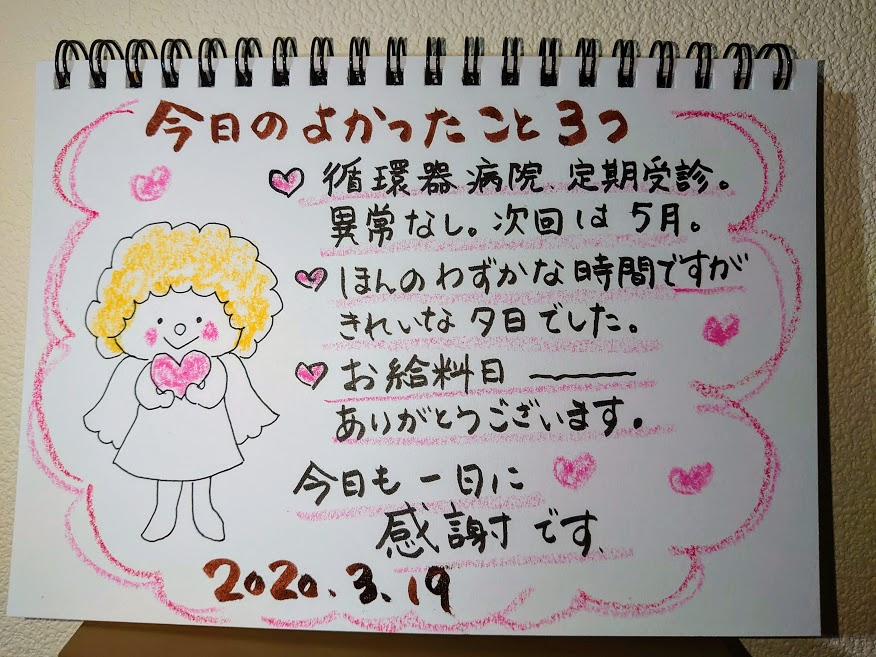 今日のよかったこと3つ
循環器病院、定期受診。
異常なし。次回は5月。
ほんのわずかな時間ですが
きれいな夕日でした。
お給料日――――
ありがとうございます。
今日も一日に
感謝です
2020.3.19